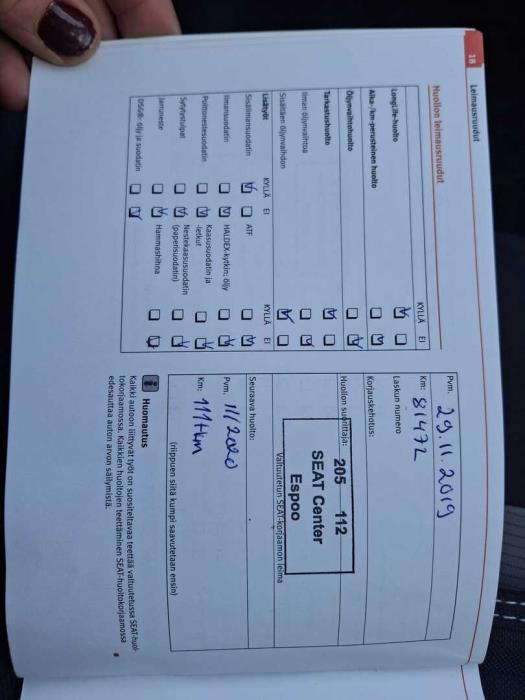 18
Leimausruudut
Huollon leimausruudut
KYLLÄ EI
LongLife-huolto
Aika-/km-perusteinen huolto
Öljynvaihtohuolto
Tarkastushuolto
Ilman öljynvaihtoa
Sisältäen öljynvaihdon
Lisätyöt KYLLÄ EI KYLLÄ EI
Sisäilmansuodatin ATF
Ilmansuodatin HALDEX-kytkin; öljy
Polttonestesuodatin Kaasusuodatin ja
-letkut
Sytytystulpat Nestekaasusuodatin
(paperisuodatin)
Jarruneste Hammashihna
DSG®: öljy ja suodatin
Pvm. 29.11.2019
Km: 81472
Laskun numero
Korjauskehotus:
Huollon suorittaja:
205 112
SEAT Center
Espoo
Valtuutetun SEAT-korjaamon leima
Seuraava huolto:
Pvm. 11/2020
Km: 111tkm
(riippuen siitä kumpi saavutetaan ensin)
Huomautus
Kaikki autoon liittyvät työt on suositeltavaa teettää valtuutetussa SEAT-huol-
tokorjaamossa. Kaikkien huoltojen teettäminen SEAT-huoltokorjaamossa
edesauttaa auton arvon säilymistä.